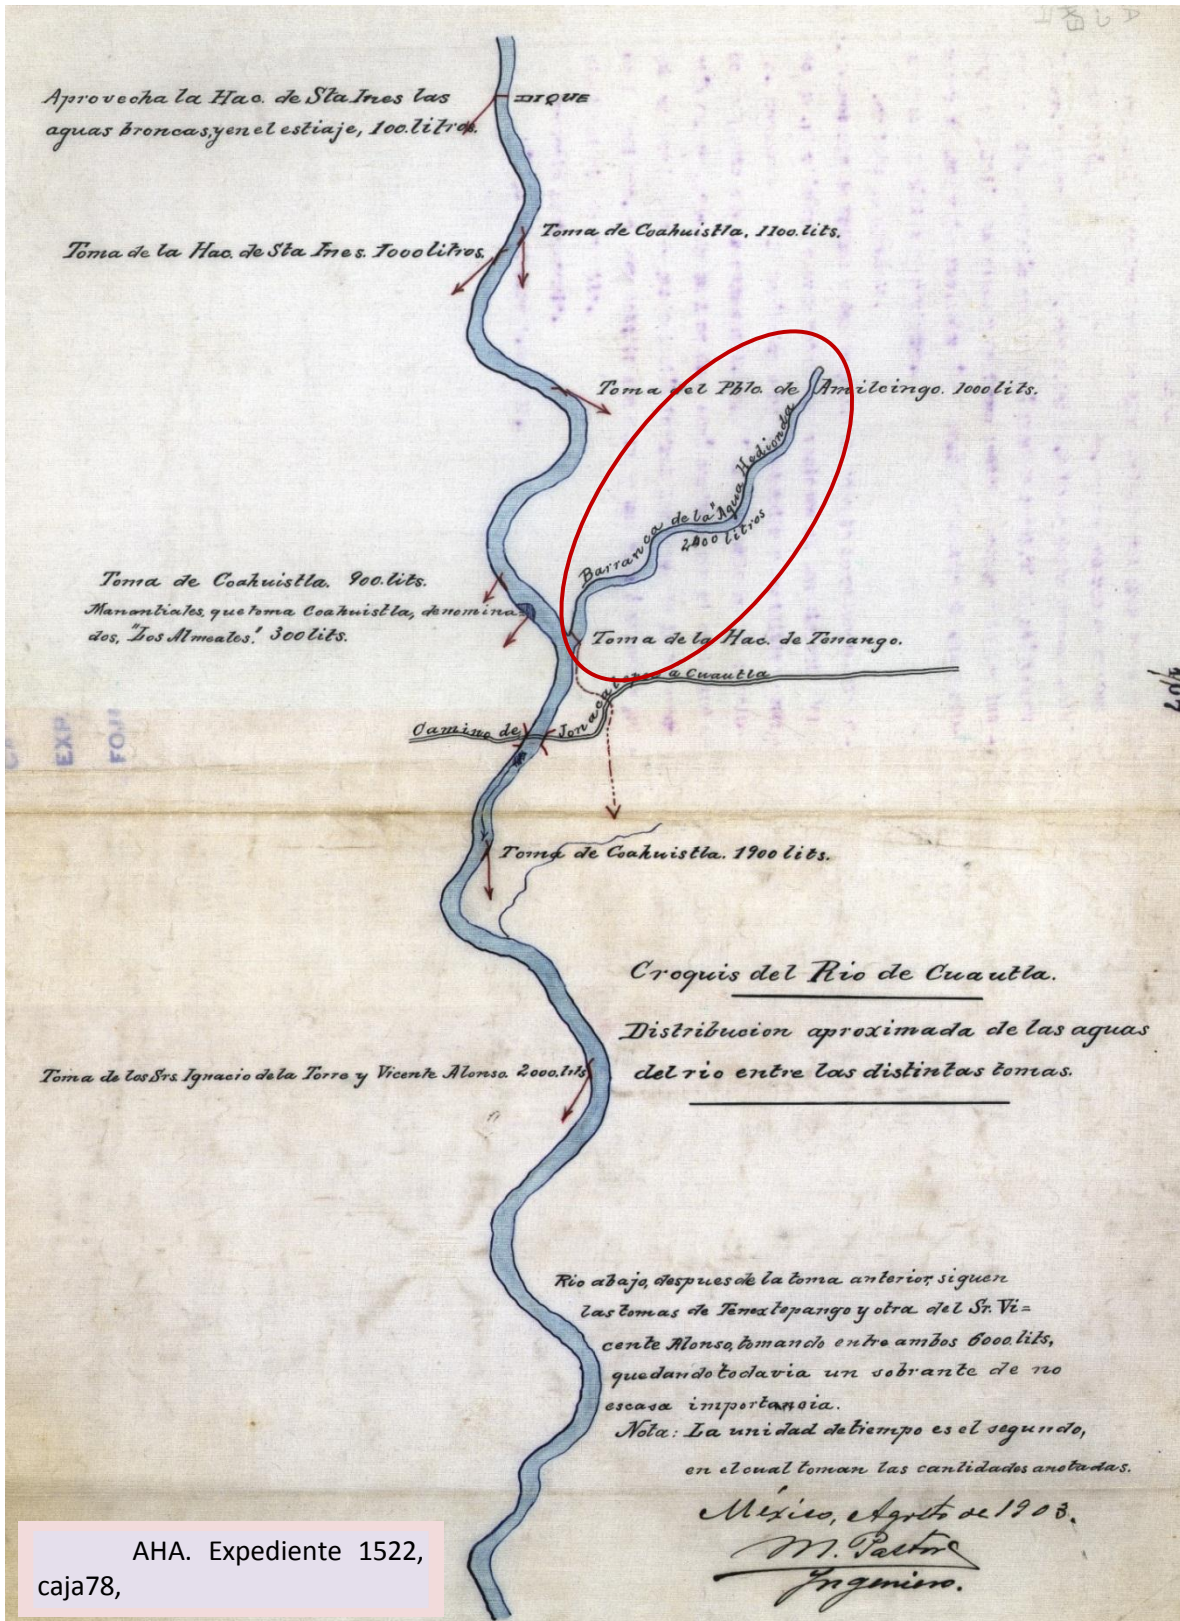 Aprovecha la Hac. de Sta Ines las
aguas broncas, y en el estiaje, 100. litros.
DIQUE
Toma de Coahuistla, 1100. lits.
Toma de la Hac. de Sta Ines. 1000 litros.
Toma del Pblo. de Amilcingo. 1000 lits.
Barranca de la "Agua Hedionda
2400 litros
Toma de Coahuistla. 900. lits.
Manantiales, que toma Coahuistla, denomina
dos, "Los Almeales." 300 lits.
Toma de la Hac. de Tenango.
Camino de Jonacatepec a Cuautla
EXP.
Toma de Coahuistla. 1900 lits.
Croquis del Rio de Cuautla.
Distribucion aproximada de las aguas
del rio entre las distintas tomas.
Toma de los Srs. Ignacio de la Torre y Vicente Alonso. 2000. lits
Rio abajo, despues de la toma anterior, siguen
las tomas de Tenextepango y otra del Sr. Vi=
cente Alonso, tomando entre ambos 6000. lits,
quedando todavia un sobrante de no
escasa importancia.
Nota: La unidad de tiempo es el segundo,
en el cual toman las cantidades anotadas.
México, Agosto de 1903.
M. Pastor
Ingeniero.
AHA. Expediente 1522,
caja78,